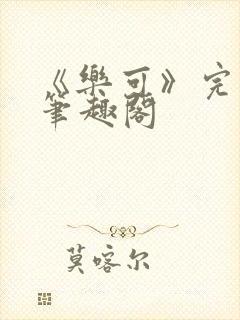 《樂可》完
筆趣閣
莫喀尔